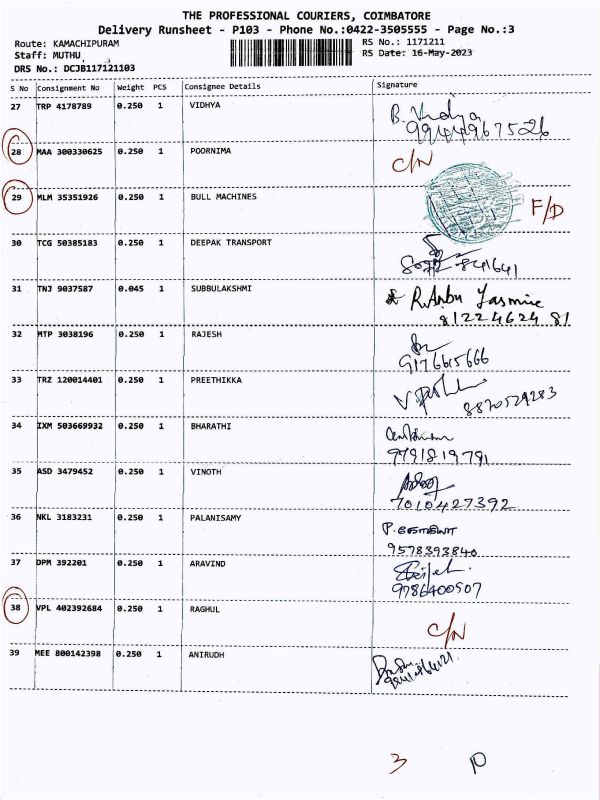 THE PROFESSIONAL COURIERS, COIMBATORE
Delivery Runsheet - P103 - Phone No.:0422-3505555 - Page No.:3
Route: KAMACHIPURAM
RS No.: 1171211
Staff: MUTHU
RS Date: 16-May-2023
DRS No.: DCJB117121103
S No Consignment No Weight PCS Consignee Details Signature
27 TRP 4178789 0.250 1 VIDHYA B. Vidya
9944967526
28 MAA 300330625 0.250 1 POORNIMA C/N
29 MLM 35351926 0.250 1 BULL MACHINES F/D
30 TCG 50385183 0.250 1 DEEPAK TRANSPORT
841641
31 TNJ 9037587 0.045 1 SUBBULAKSHMI R. Anbu Jasmine
81224624 81
32 MTP 3038196 0.250 1 RAJESH
9176615666
33 TRZ 120014401 0.250 1 PREETHIKKA
8870529283
34 IXM 503669932 0.250 1 BHARATHI
9791819791
35 ASD 3479452 0.250 1 VINOTH
7010427392
36 NKL 3183231 0.250 1 PALANISAMY
9578393840
37 DPM 392201 0.250 1 ARAVIND
9786400507
38 VPL 402392684 0.250 1 RAGHUL C/N
39 MEE 800142398 0.250 1 ANIRUDH
3 P